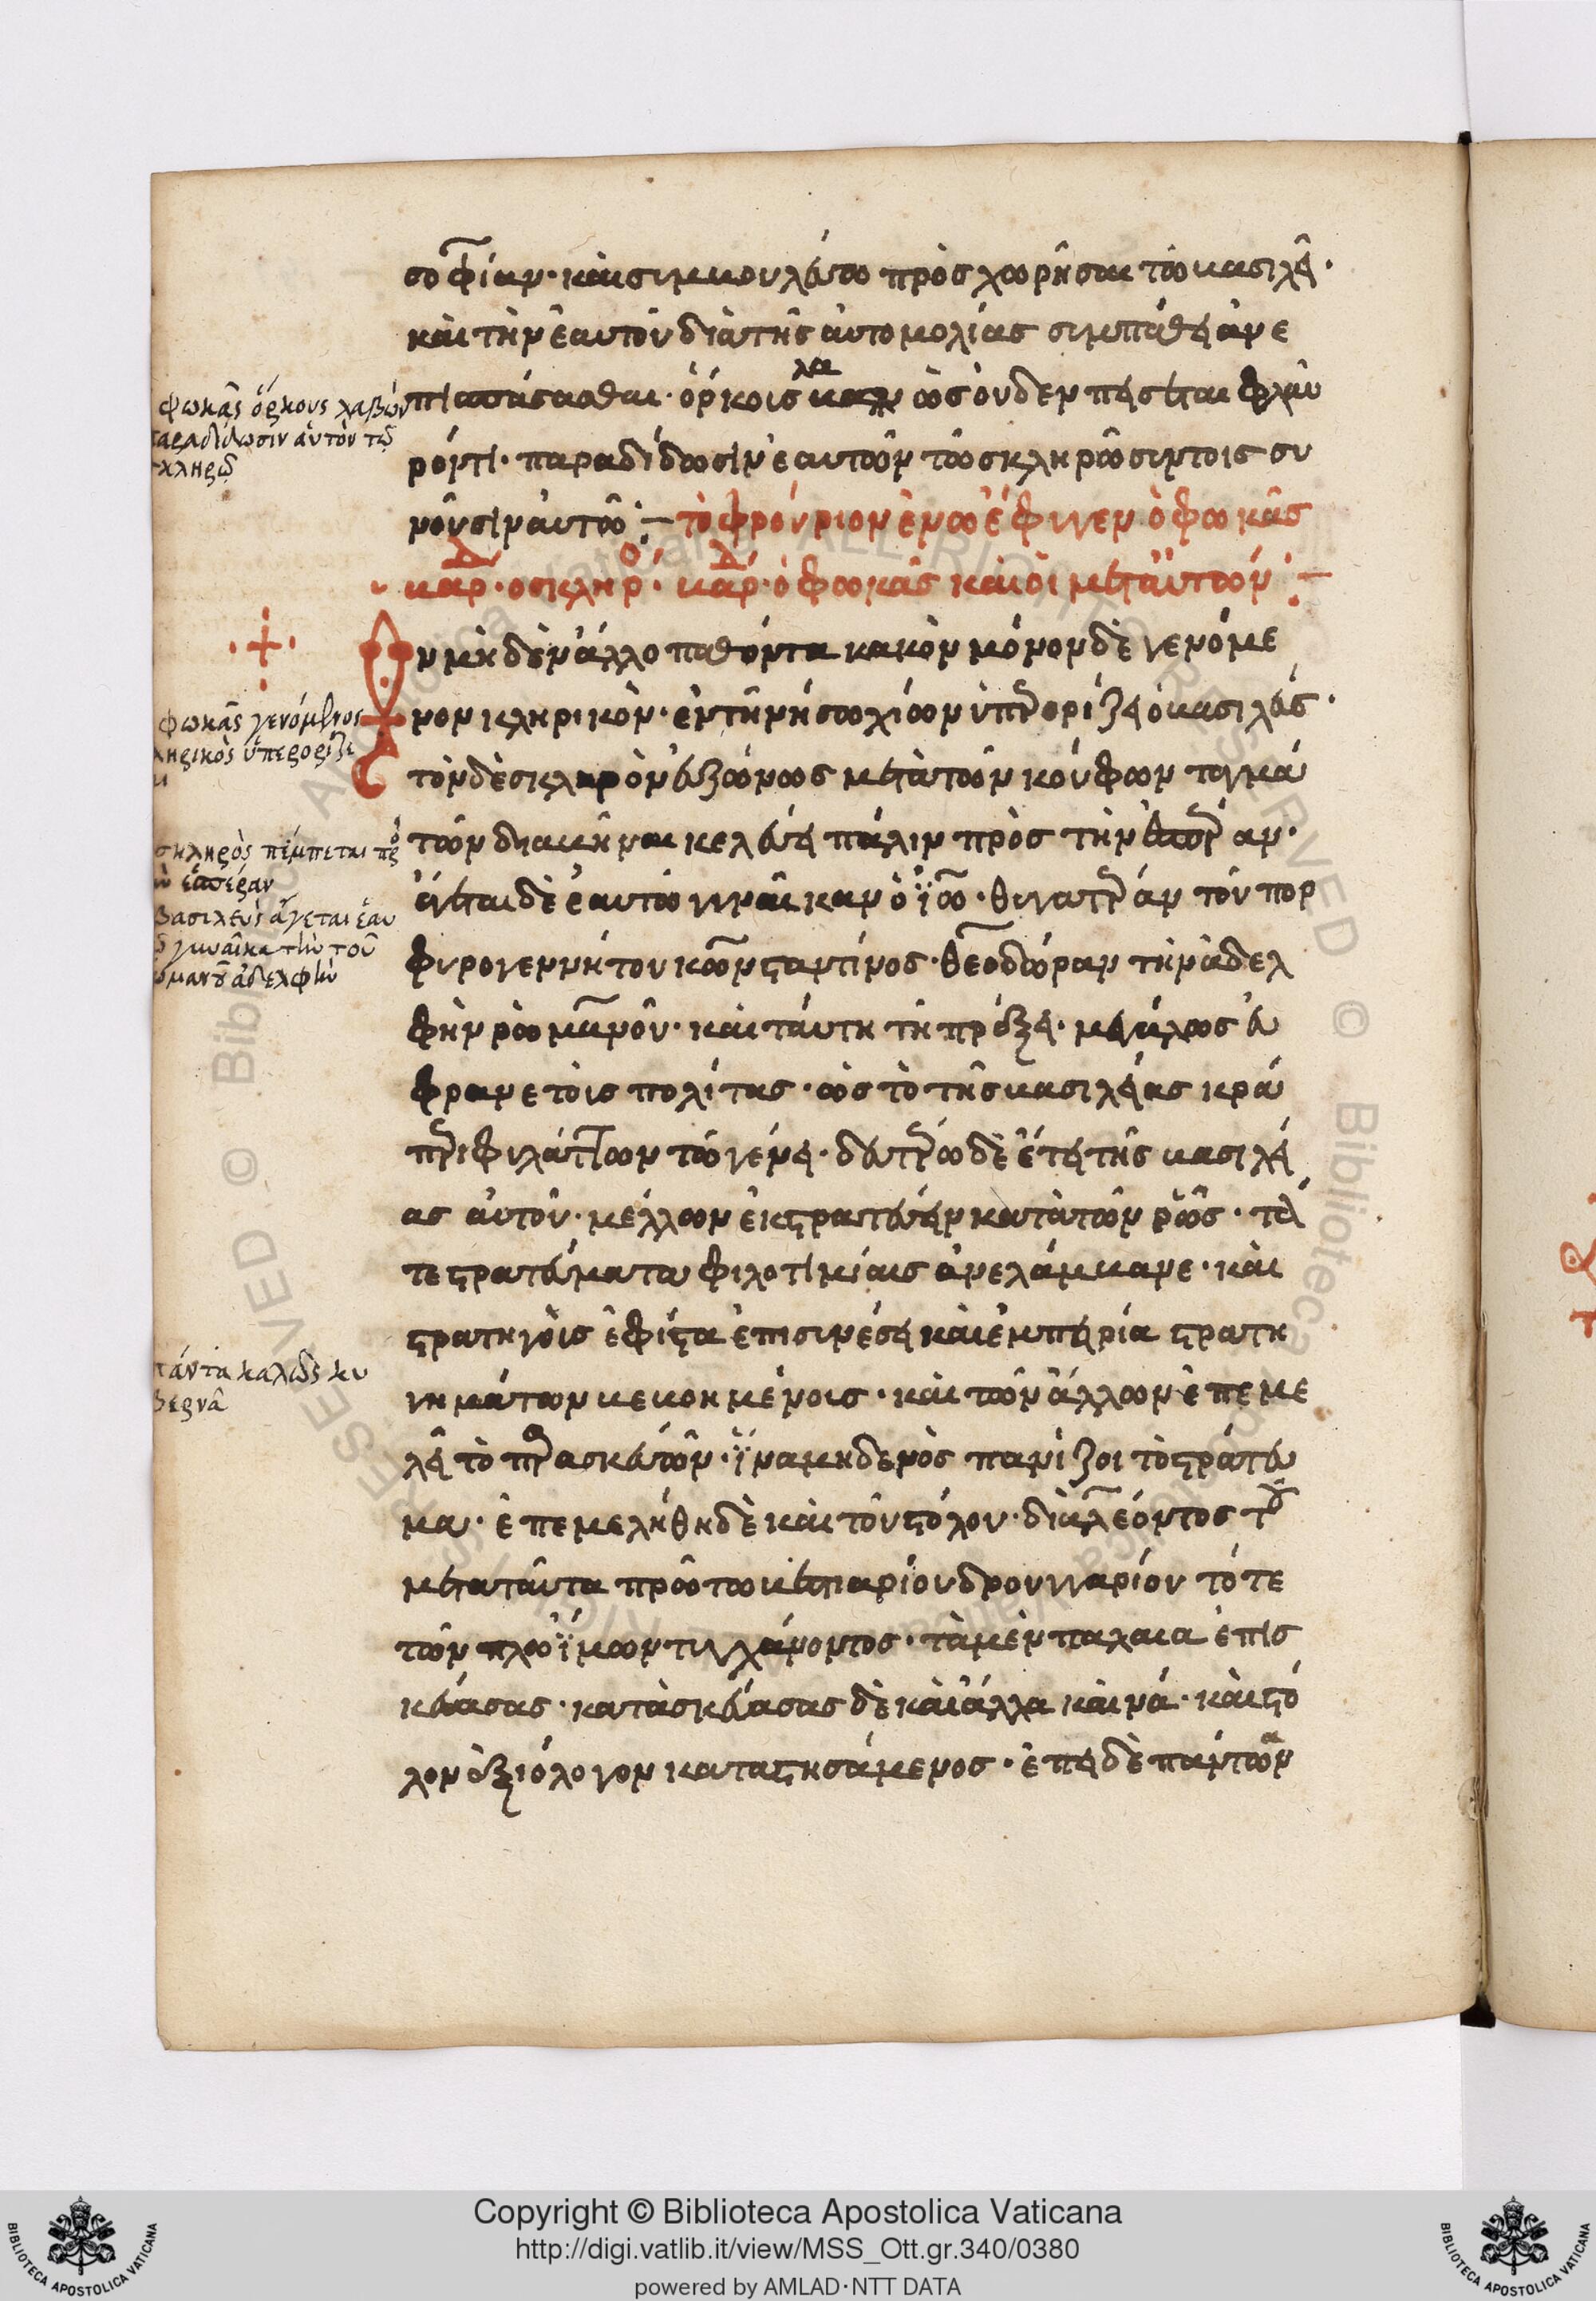 σοφίαν· καὶ συμβουλεύω προσχωρῆσαι τῶ βασιλεῖ·
καὶ τὴν ἑαυτοῦ διὰ τῆς αὐτομολίας συμπάθειαν ε
πισπάσασθαι· ὁ ὅρκοις λαβὼν ὡς οὐδὲν πείσεται φλαῦ
ρόν τι· παραδίδωσιν ἑαυτὸν τῶ σκληρῶ σὺν τοῖς συ
νοῦσιν αὐτῶ:— τὸ φρούριον ἐν ὧ ἔφυγεν ὁ φωκᾶς
βάρδ· ο σκληρός· βάρδ· ὁ φωκᾶς καὶ οἱ μετ' αὐτῶν:—
ν μηδὲν ἄλλο παθόντα κακὸν μόνον δὲ γενόμε
νον κληρικὸν· ἐν τῆ νήσω χίων ὑπερορίζει ὁ βασιλεύς·
τὸν δὲ σκληρὸν εὐζώνως μετὰ τῶν κούφων ταγμά
των διαβῆναι κελεύει πάλιν πρὸς τὴν ἑσπέραν·
ἄγεται δὲ ἑαυτῶ γυναῖκαν ὁ ἰω· θυγατέραν τοῦ πορ
φυρογεννήτου κωνσταντίνος· θεοδώραν τὴν ἀδελ
φὴν ρωμανοῦ· καὶ ταύτη τῆ πράξει· μεγάλως εὔ
φρανε τοῖς πολίτας· ὡς τὸ τῆς βασιλείας κρά
τερι φυλάττων τῶ γένει· δευτέρω δὲ ἔτει τῆς βασιλεί
ας αὐτοῦ· μέλλων ἐκστρατεύειν κατὰ τῶν ρῶς· τά
τε στρατεύματα φιλοτιμίαις ἀνελάμβανε· καὶ
στρατηγοῖς ἐφίστα ἐπὶ συνέσει καὶ ἐμπειρία στρατη
γημάτων βεβοημένοις· καὶ τῶν ἄλλων ἐπεμε
λεῖτο παρασκευῶν· ἵνα μηδενὸς σπανίζοι τὸ στράτευ
μα· ἐπεμελήθη δὲ καὶ τοῦ στόλου· διὰ λέοντος τοῦ
μετὰ ταῦτα πρωτοβεστιαρίου δρουγγαρίου τότε
τῶν πλωΐμων τυγχάνοντος· τὰ μὲν παλαια ἐπισ
κευάσας· κατασκευάσας δὲ καὶ ἄλλα καινά· καὶ στό
λον ἀξιόλογον καταστησάμενος· ἐπεὶ δὲ πάντων
φωκᾶς ὅρκους λαβὼν
παραδίδωσιν αὐτὸν τῶ
σκληρῶ
φωκᾶς γενόμενος
κληρικὸς ὑπερορίζε
σκληρὸς πέμπεται πρὸ
ἑσπέραν
βασιλεὺς ἄγεται ἑαυ
γυναῖκα τὴν τοῦ
ρωμανοῦ ἀδελφὴν
πάντα καλῶς κυ
βερνᾶ
Copyright © Biblioteca Apostolica Vaticana
http://digi.vatlib.it/view/MSS_Ott.gr.340/0380
powered by AMLAD·NTT DATA